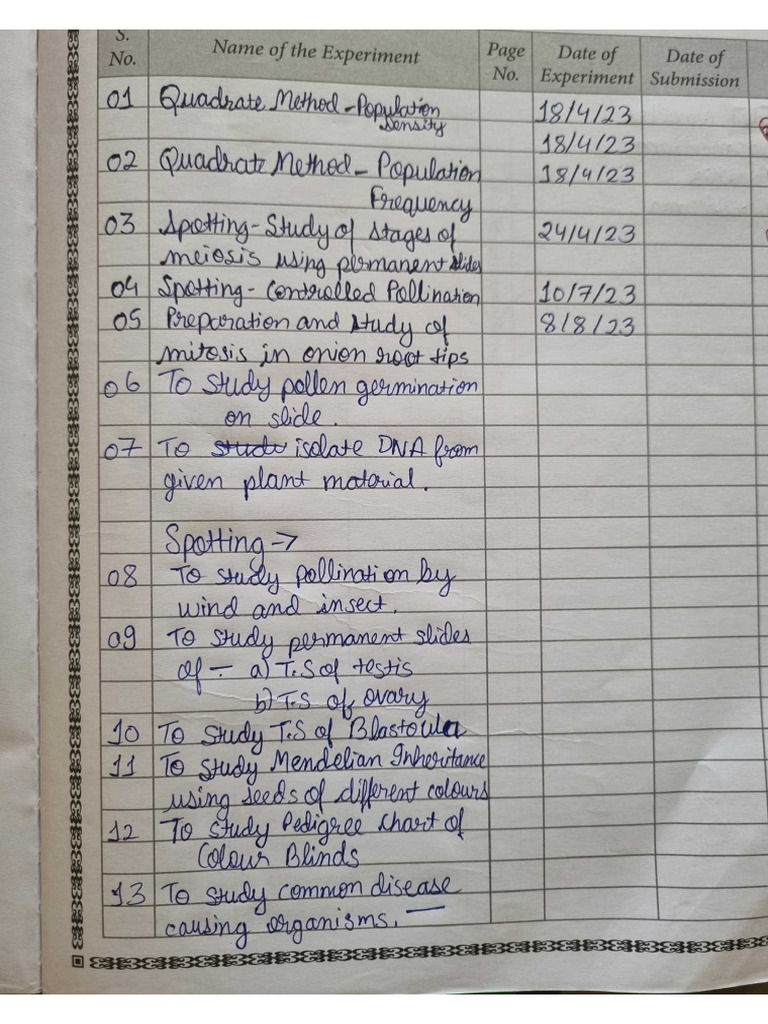 S. No. Name of the Experiment Page No. Date of Experiment Date of Submission
01 Quadrate Method - Population Density 18/4/23
18/4/23
02 Quadrate Method - Population 18/4/23
Frequency
03 Spotting - Study of stages of 24/4/23
meiosis using permanent slides
04 Spotting - Controlled Pollination 10/7/23
05 Preparation and study of 8/8/23
mitosis in onion root tips
06 To study pollen germination
on slide.
07 To study isolate DNA from
given plant material.
Spotting →
08 To study pollination by
wind and insect.
09 To study permanent slides
of - a) T.S of testis
b) T.S of ovary
10 To study T.S of Blastoula
11 To study Mendelian Inheritance
using seeds of different colours
12 To study Pedigree chart of
Colour Blinds
13 To study common disease
causing organisms. —